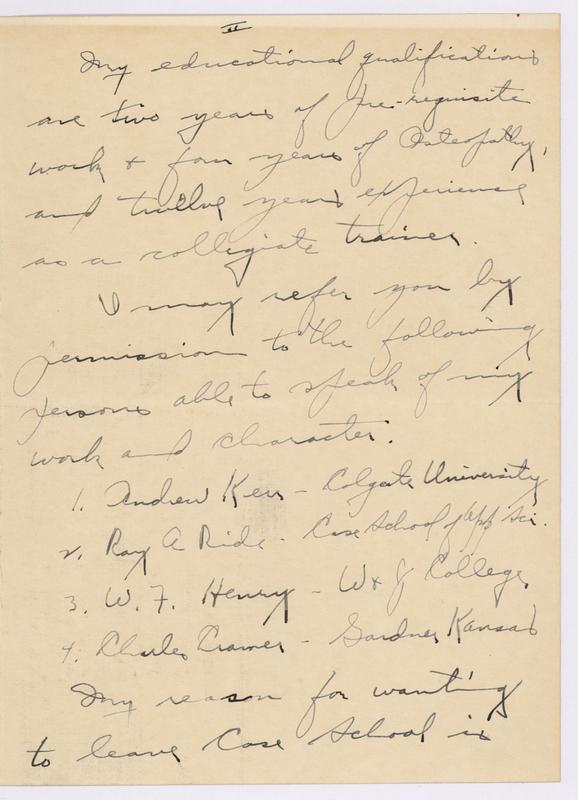 II
My educational qualifications
are two years of Pre-requisite
work & four years of Osteopathy,
and twelve years experience
as a collegiate trainer.
I may refer you by
permission to the following
persons able to speak of my
work and character.
1. Andrew Kerr - Colgate University
2. Ray A Ride - Case School of App Sci.
3. W. F. Henry - W & J College
4. Charles Cramer - Gardner Kansas
My reason for wanting
to leave Case School is